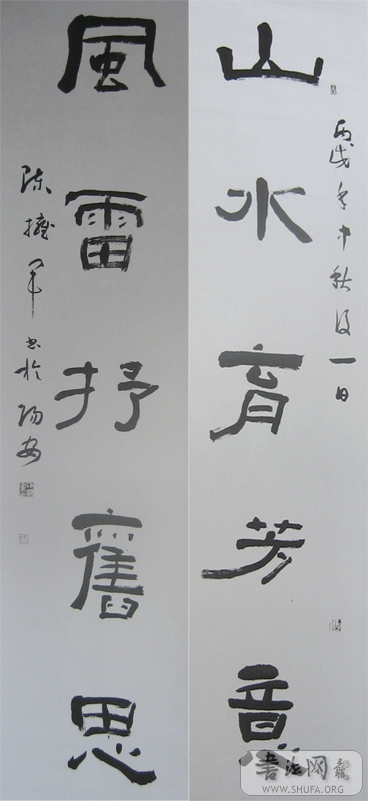 山水育芳意
丙戌年中秋后一日
風雷抒舊思
陈拥军书於陽安
書法网
WWW.SHUFA.ORG